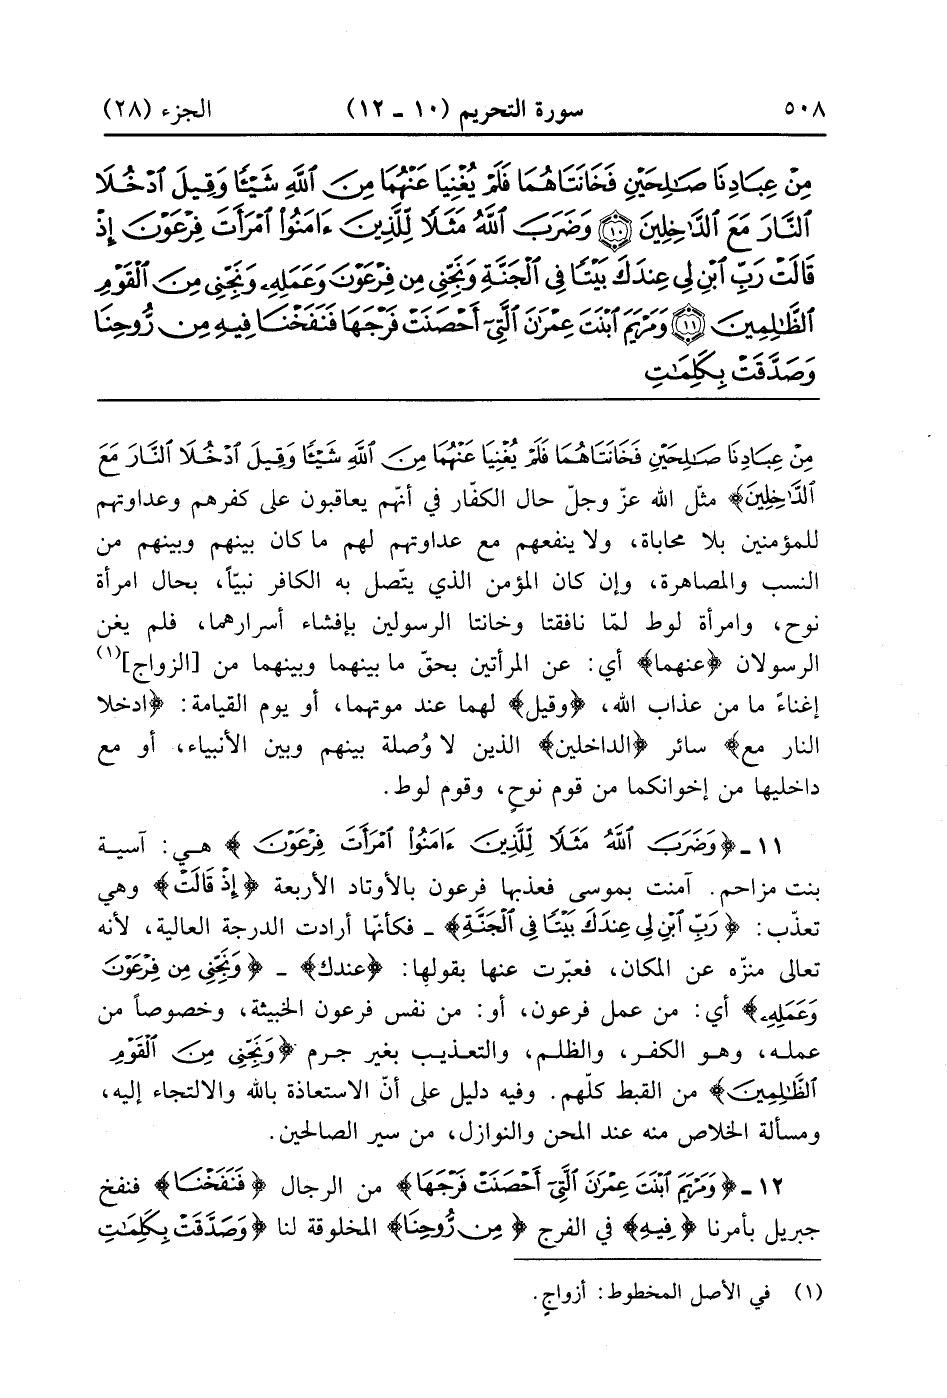 ٥٠٨ سورة التحريم (١٠ ـ ١٢) الجزء (٢٨)
مِنْ عِبَادِنَا صَٰلِحَيْنِ فَخَانَتَاهُمَا فَلَمْ يُغْنِيَا عَنْهُمَا مِنَ ٱللَّهِ شَيْـًٔا وَقِيلَ ٱدْخُلَا
ٱلنَّارَ مَعَ ٱلدَّٰخِلِينَ ١٠ وَضَرَبَ ٱللَّهُ مَثَلًا لِّلَّذِينَ ءَامَنُوا۟ ٱمْرَأَتَ فِرْعَوْنَ إِذْ
قَالَتْ رَبِّ ٱبْنِ لِى عِندَكَ بَيْتًا فِى ٱلْجَنَّةِ وَنَجِّنِى مِن فِرْعَوْنَ وَعَمَلِهِۦ وَنَجِّنِى مِنَ ٱلْقَوْمِ
ٱلظَّٰلِمِينَ ١١ وَمَرْيَمَ ٱبْنَتَ عِمْرَٰنَ ٱلَّتِىٓ أَحْصَنَتْ فَرْجَهَا فَنَفَخْنَا فِيهِ مِن رُّوحِنَا
وَصَدَّقَتْ بِكَلِمَٰتِ
مِنْ عِبَادِنَا صَٰلِحَيْنِ فَخَانَتَاهُمَا فَلَمْ يُغْنِيَا عَنْهُمَا مِنَ ٱللَّهِ شَيْـًٔا وَقِيلَ ٱدْخُلَا ٱلنَّارَ مَعَ
ٱلدَّٰخِلِينَ﴾ مثّل الله عزّ وجلّ حال الكفّار في أنّهم يعاقبون على كفرهم وعداوتهم
للمؤمنين بلا محاباة، ولا ينفعهم مع عداوتهم لهم ما كان بينهم وبينهم من
النسب والمصاهرة، وإن كان المؤمن الذي يتّصل به الكافر نبيّاً، بحال امرأة
نوح، وامرأة لوط لمّا نافقتا وخانتا الرسولين بإفشاء أسرارهما، فلم يغن
الرسولان ﴿عنهما﴾ أي: عن المرأتين بحقّ ما بينهما وبينهما من [الزواج](١)
إغناءً ما من عذاب الله، ﴿وقيل﴾ لهما عند موتهما، أو يوم القيامة: ﴿ادخلا
النار مع﴾ سائر ﴿الداخلين﴾ الذين لا وُصلة بينهم وبين الأنبياء، أو مع
داخليها من إخوانكما من قوم نوحٍ، وقوم لوط.
١١ ـ ﴿وَضَرَبَ ٱللَّهُ مَثَلًا لِّلَّذِينَ ءَامَنُوا۟ ٱمْرَأَتَ فِرْعَوْنَ﴾ هي: آسية
بنت مزاحم. آمنت بموسى فعذبها فرعون بالأوتاد الأربعة ﴿إِذْ قَالَتْ﴾ وهي
تعذّب: ﴿رَبِّ ٱبْنِ لِى عِندَكَ بَيْتًا فِى ٱلْجَنَّةِ﴾ ـ فكأنّها أرادت الدرجة العالية، لأنه
تعالى منزّه عن المكان، فعبّرت عنها بقولها: ﴿عندك﴾ ـ ﴿وَنَجِّنِى مِن فِرْعَوْنَ
وَعَمَلِهِۦ﴾ أي: من عمل فرعون، أو: من نفس فرعون الخبيثة، وخصوصاً من
عمله، وهو الكفر، والظلم، والتعذيب بغير جرم ﴿وَنَجِّنِى مِنَ ٱلْقَوْمِ
ٱلظَّٰلِمِينَ﴾ من القبط كلّهم. وفيه دليل على أنّ الاستعاذة بالله والالتجاء إليه،
ومسألة الخلاص منه عند المحن والنوازل، من سير الصالحين.
١٢ ـ ﴿وَمَرْيَمَ ٱبْنَتَ عِمْرَٰنَ ٱلَّتِىٓ أَحْصَنَتْ فَرْجَهَا﴾ من الرجال ﴿فَنَفَخْنَا﴾ فنفخ
جبريل بأمرنا ﴿فِيهِ﴾ في الفرج ﴿مِن رُّوحِنَا﴾ المخلوقة لنا ﴿وَصَدَّقَتْ بِكَلِمَٰتِ
(١) في الأصل المخطوط: أزواجٍ.